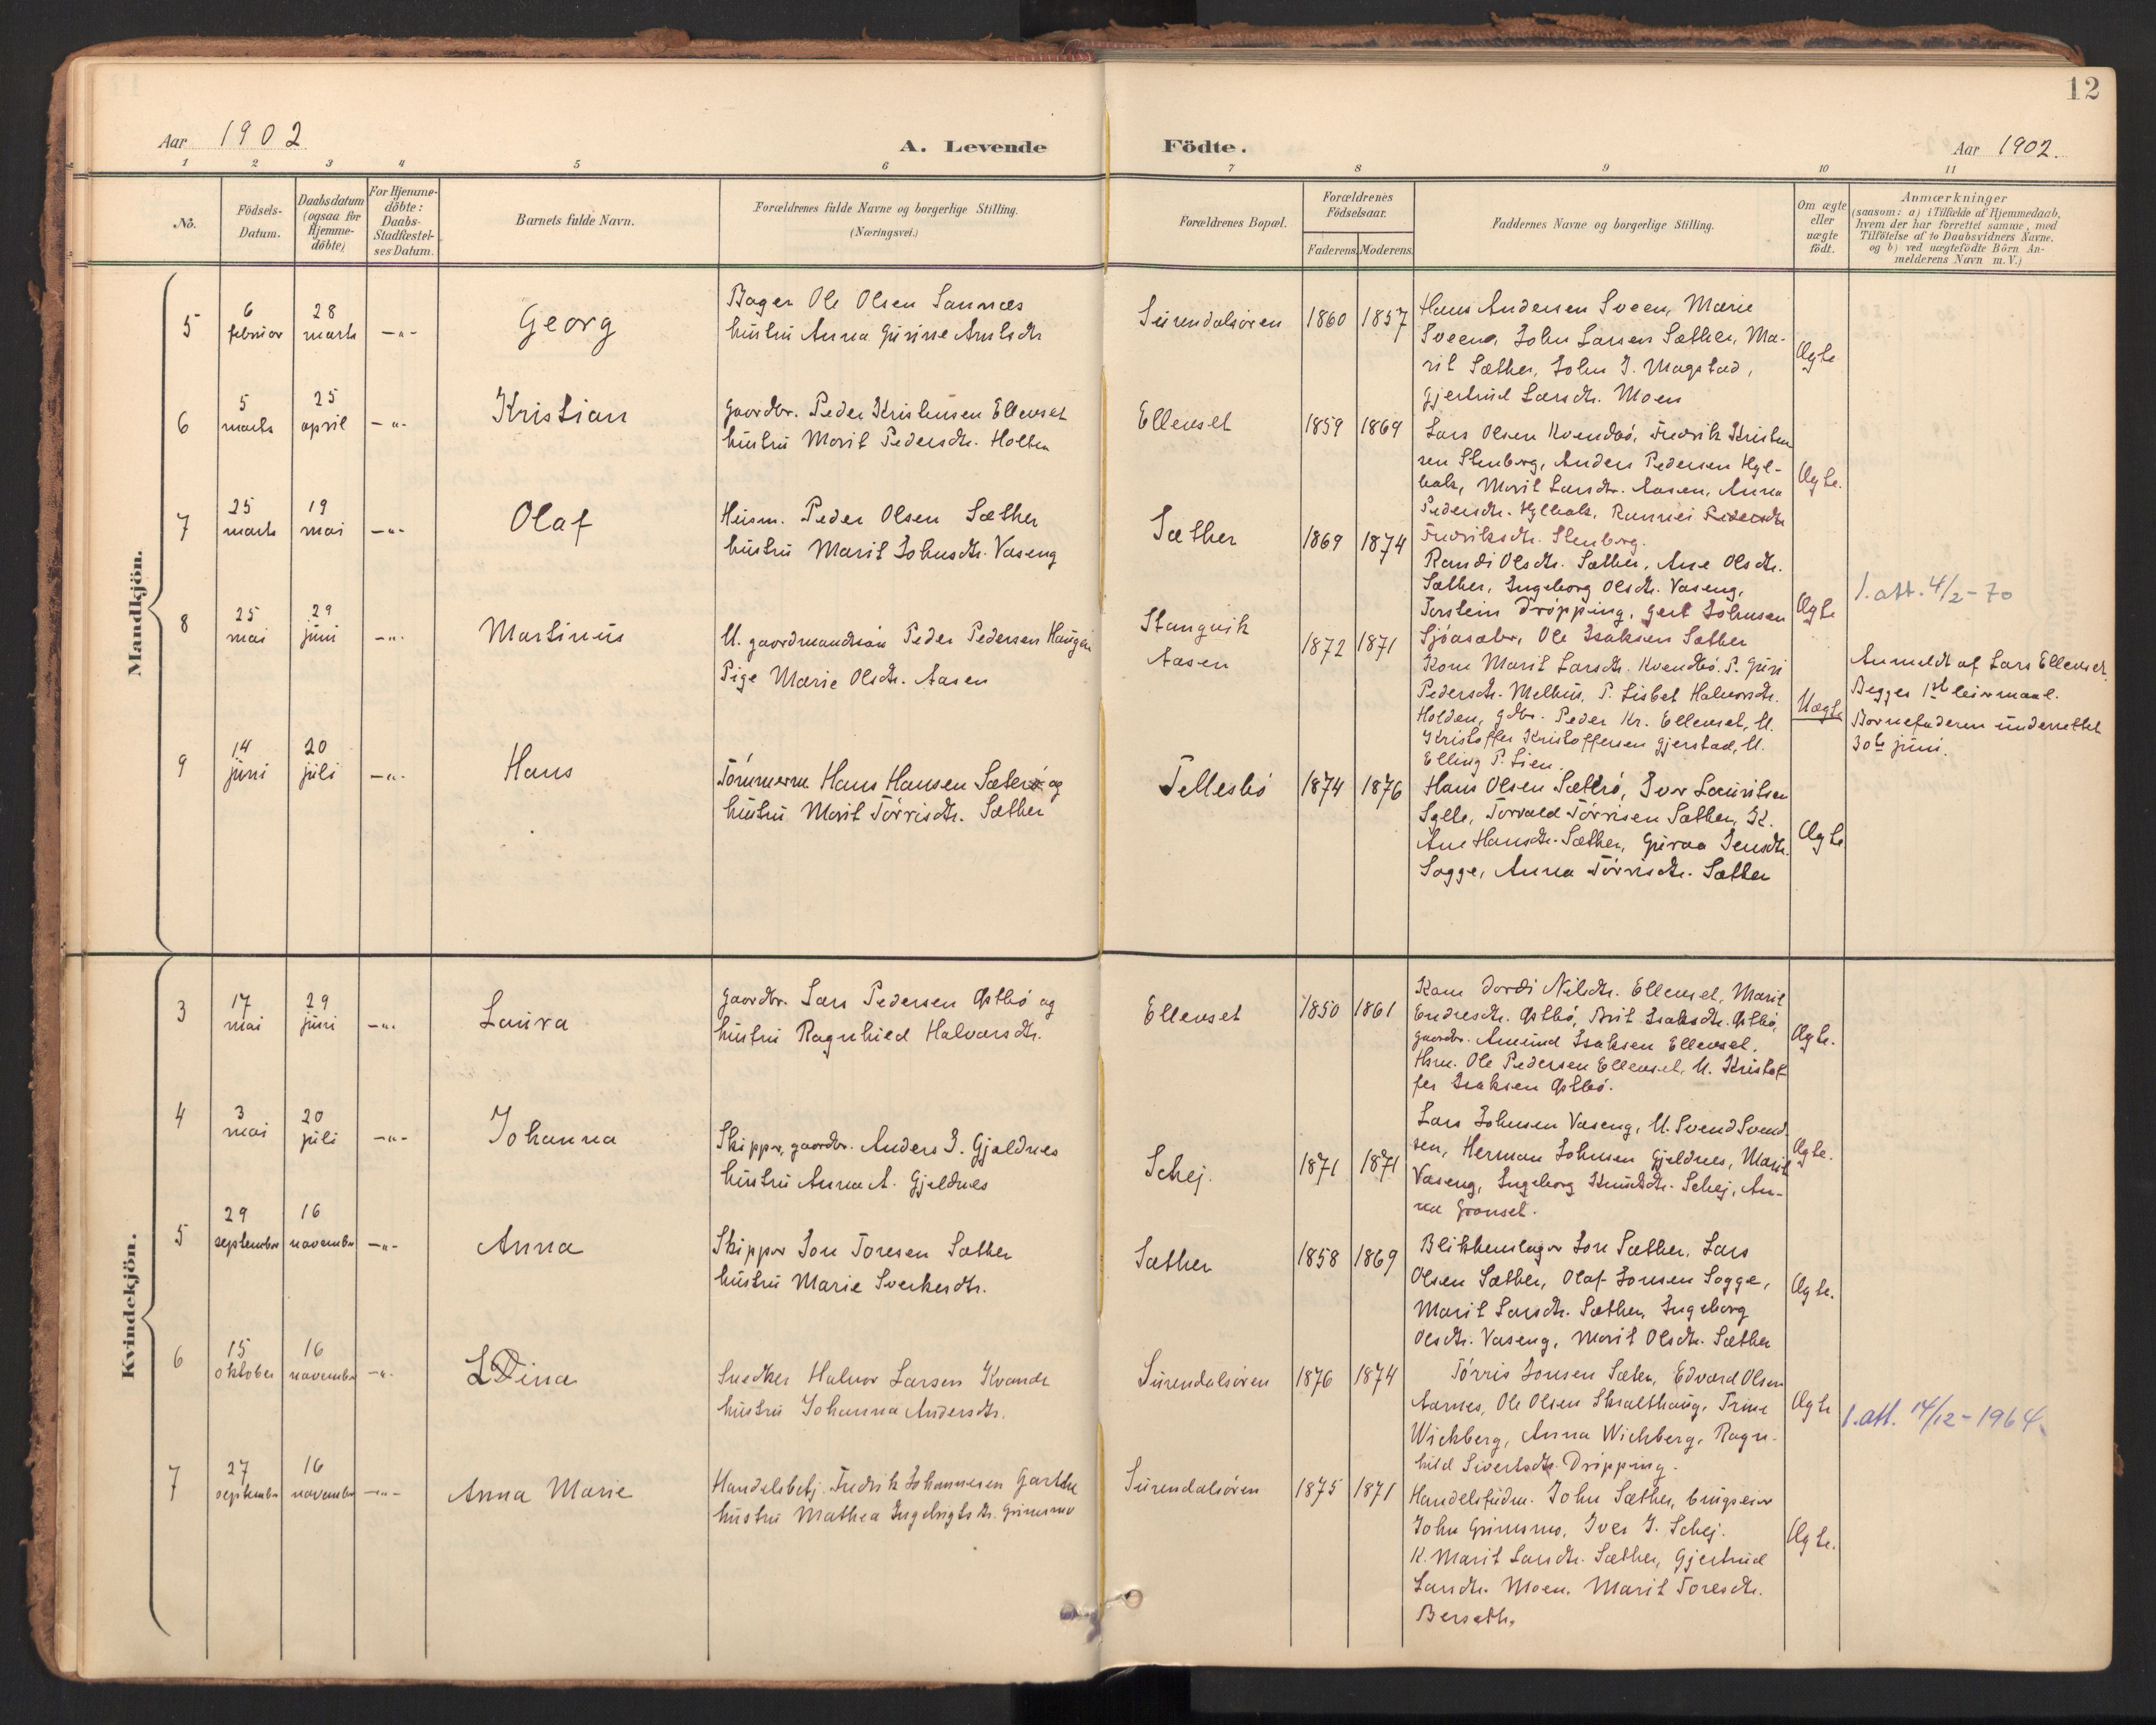 12
Aar 1902
A. Levende Födte.
Aar 1902.
1 2 3 4 5 6 7 8 9 10 11
No.
Födsels-Datum.
Daabsdatum (ogsaa for Hjemme-döbte)
For Hjemme-döbte: Daabs-Stadfæstel-ses Datum.
Barnets fulde Navn.
Forældrenes fulde Navne og borgerlige Stilling. (Næringsvei.)
Forældrenes Bopæl.
Forældrenes Födselsaar.
Faderens. Moderens.
Faddernes Navne og borgerlige Stilling.
Om ægte eller uægte födt.
Anmærkninger
(saasom: a) i Tilfælde af Hjemmedaab,
hvem der har forrettet samme, med
Tilföielse af to Daabsvidners Navne.
og b) ved uægtefödte Börn An-
melderens Navn m. V.)
Mandkjön.
5 6 februar 28 marts -"- Georg
Bager Ole Olsen Sannæs
hustru Anna Gurine Arntsdtr
Surendalsören 1860 1857
Hans Andersen Sveen, Marie
Sveen, John Larsen Sæther, Ma-
rit Sæther, John J. Mogstad,
Gjertrud Larsdtr. Moen
Ægte
6 5 marts 25 april -"- Kristian
Gaardbr. Peder Kristensen Ellevset
hustru Marit Pedersdtr. Holten
Ellevset 1859 1869
Lars Olsen Kvendbö, Fredrik Kristen
sen Stenberg, Anders Pedersen Hyl-
bak, Marit Larsdtr. Aasen, Anna
Pedersdtr. Hylbak, Runnei Pedersdtr
Fredriksdtr. Stenberg.
Ægte.
7 25 marts 19 mai -"- Olaf
Husm. Peder Olsen Sæther
hustru Marit Johnsdtr. Vaseng
Sæther 1869 1874
Randi Olsdtr. Sæther, Ane Olsdtr.
Sæther, Ingeborg Olsdtr. Vaseng,
Torstein Dröpping, Gert Johnsen
Sjöasæter, Ole Isaksen Sæther
Ægte
1. att. 4/2-70
8 25 mai 29 juni -"- Martinus
U. gaardmandssön Peder Pedersen Haugen
Pige Marie Olsdtr. Aasen
Stangvik
Aasen
1872 1871
Kone Marit Larsdtr. Kvendbö. P. Guri
Pedersdtr. Melhus, P. Lisbet Halvorsdtr.
Holden, gdbr. Peder Kr. Ellevset, U.
Kristoffer Kristoffersen Gjerstad, U.
Elling P. Lien.
Uægte
Anmeldt af Lars Ellevset.
Begges 1ste leiermaal.
Barnefaderen underrettet
30te juni.
9 14 juni 20 juli -"- Hans
Tömmerm. Hans Hansen Sæterö og
hustru Marit Törrisdtr. Sæther
Tellesbö 1874 1876
Hans Olsen Sæthrö, Iver Lauritsen
Sylte, Torvald Törrisen Sæther, K.
Ane Hansdtr. Sæther, Guroa Jensdtr.
Sogge, Anna Törrisdtr. Sæther
Ægte
Kvindekjön.
3 17 mai 29 juni -"- Laura
Gaardbr. Lars Pedersen Østbö og
hustru Ragnhild Halvorsdtr.
Ellevset 1850 1861
Kone Dordi Nilsdtr. Ellevset, Marit
Endresdtr. Østbö, Brit Isaksdtr. Østbö,
gaardbr. Amund Isaksen Ellevset.
Hsm. Ole Pedersen Ellevset, U. Kristof-
fer Isaksen Østbö.
Ægte.
4 3 mai 20 juli -"- Johanna
Skipper, gaardbr. Anders J. Gjeldnes
hustru Anna A. Gjeldnes
Schej. 1871 1871
Lars Johnsen Vaseng, U. Svend Svend
sen, Herman Johnsen Gjeldnes, Marit
Vaseng, Ingeborg Knudsdtr. Schej, An-
na Grönset.
Ægte.
5 29 september 16 november -"- Anna
Skipper Jon Toresen Sæther
hustru Marie Sverkesdtr.
Sæther 1858 1869
Blikkenslager Jon Sæther, Lars
Olsen Sæther, Olaf Jonsen Sogge,
Marit Larsdtr. Sæther, Ingeborg
Olsdtr. Vaseng, Marit Olsdtr. Sæther
Ægte.
6 15 oktober 16 november -"- Dina
Snedker Halvor Larsen Kvande
hustru Johanna Andersdtr.
Surendalsören 1876 1874
Törris Jonsen Sæter, Edvard Olsen
Aarnes, Ole Olsen Skralthaug, Trine
Wichberg, Anna Wichberg, Ragn-
hild Sivertsdtr. Dröpping.
Ægte
1. att. 14/12-1964.
7 27 september 16 november -"- Anna Marie
Handelsbetj. Fredrik Johannesen Garthe
hustru Mathea Ingebrigtsdtr. Grimsmo
Surendalsören 1875 1871
Handelsfuldm. John Sæther, brugseier
John Grimsmo, Iver J. Schej.
K. Marit Larsdtr. Sæther, Gjertrud
Larsdtr. Moen, Marit Toresdtr.
Berseth.
Ægte.